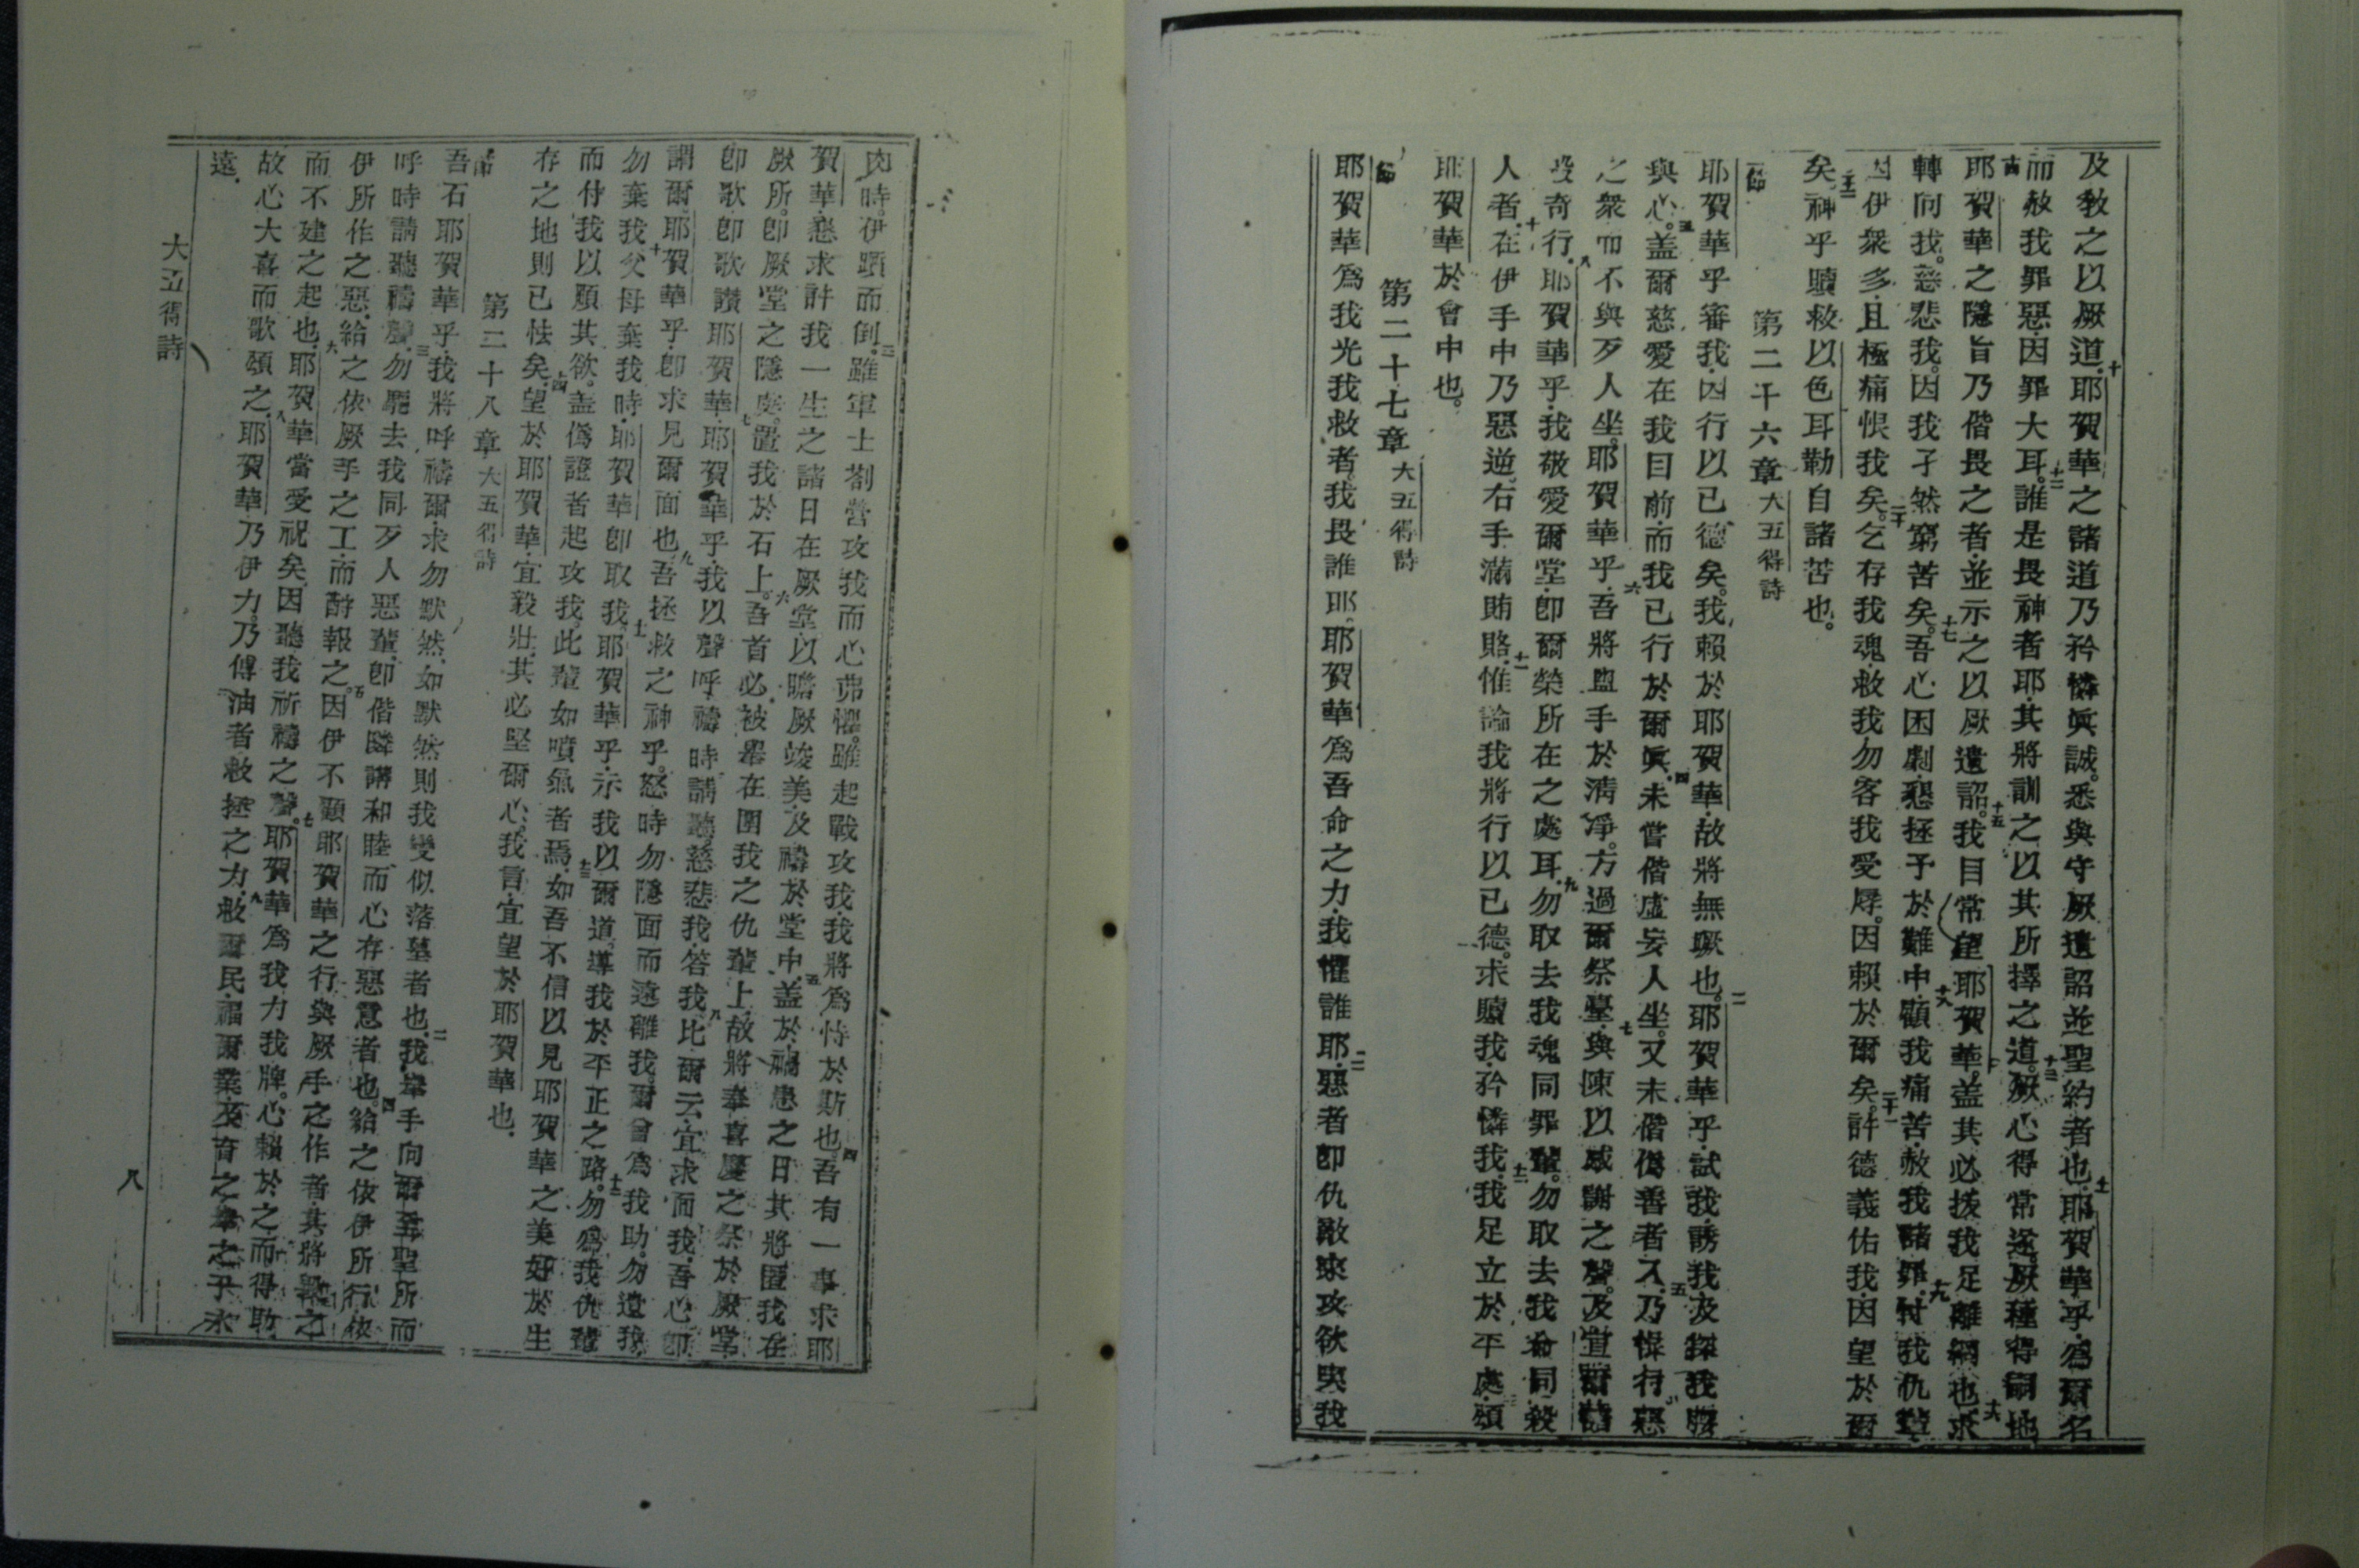 及教之以厥道十耶賀華之諸道乃矜憐眞誠悉與守厥遺詔並聖約者也十一耶賀華乎爲爾名
而赦我罪惡因罪大耳十二誰是畏神者耶其將訓之以其所擇之道十三厥心得常逸厥種得嗣地
十四耶賀華之隱旨乃偕畏之者並示之以厥遺詔十五我目常望耶賀華蓋其必拔我足離網也十六求
轉向我慈悲我因我孑然窮苦矣十七吾心困劇懇拯予於難中十八顧我痛苦赦我諸罪十九忖我仇輩
因伊衆多且極痛恨我矣二十乞存我魂救我勿容我受辱因賴於爾矣二十一許德義佑我因望於爾
矣二十二神乎贖救以色耳勒自諸苦也
第二十六章大五得詩
一節耶賀華乎審我因行以已德矣我賴於耶賀華故將無蹶也二耶賀華乎試我誘我及探我腎
與心三蓋爾慈愛在我目前而我已行於爾眞四未嘗偕虛妄人坐又未偕僞善者入五乃惟行惡
之衆而不與歹人坐六耶賀華乎吾將盥手於清淨方過爾祭臺七與陳以感謝之聲及宣爾諸
般奇行八耶賀華乎我敬愛爾堂卽爾榮所在之處耳九勿取去我魂同罪輩勿取去我命同殺
人者十在伊手中乃惡逆右手滿賄賂十一惟論我將行以已德求贖我矜憐我十二我足立於平處頌
耶賀華於會中也
第二十七章大五得詩
一節耶賀華爲我光我救者我畏誰耶耶賀華爲吾命之力我懼誰耶二惡者卽仇敵來攻欲喫我
肉時伊躓而倒三雖軍士劄營攻我而心弗懼雖起戰攻我我將爲恃於斯也四吾有一事求耶
賀華懇求許我一生之諸日在厥堂以瞻厥竣美及禱於堂中五蓋於禍患之日其將匿我在
厥所卽厥堂之隱處置我於石上六吾首必被舉在圍我之仇輩上故將奉喜慶之祭於厥堂
卽歌卽歌讚耶賀華七耶賀華乎我以聲呼禱時請聽慈悲我答我八比爾云宜求面我吾心卽
謂爾耶賀華乎卽求見爾面也九吾拯救之神乎怒時勿隱面而遠離我爾曾爲我助勿遺我
勿棄我十父母棄我時耶賀華卽取我十一耶賀華乎示我以爾道導我於平正之路十二勿爲我仇輩
而付我以願其欲蓋僞證者起攻我此輩如噴氣者焉十三如吾不信以見耶賀華之美好於生
存之地則已怯矣十四望於耶賀華宜毅壯其必堅爾心我言宜望於耶賀華也
第二十八章大五得詩
一節吾石耶賀華乎我將呼禱爾求勿默然如默然則我變似落墓者也二我舉手向爾至聖所而
呼時請聽禱聲三勿驅去我同歹人惡輩卽偕隣講和睦而心存惡意者也四給之依伊所行依
伊所作之惡給之依厥手之工而酧報之五因伊不顧耶賀華之行與厥手之作者其將毀之
而不建之起也六耶賀華當受祝矣因聽我祈禱之聲七耶賀華爲我力我牌心賴於之而得助
故心大喜而歌頌之八耶賀華乃伊力乃傅油者救拯之力九救爾民福爾業及育之舉之于永
遠
大五得詩
八